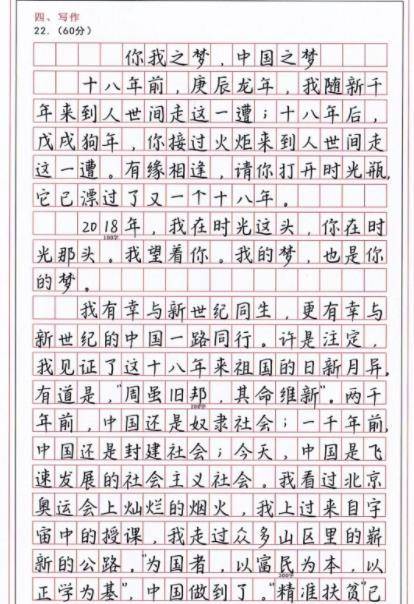 四、写作
22.（60分）
你我之梦，中国之梦
十八年前，庚辰龙年，我随新千
年来到人世间走这一遭；十八年后，
戊戌狗年，你接过火炬来到人世间走
这一遭。有缘相逢，请你打开时光瓶，
它已漂过了又一个十八年。
2018年，我在时光这头，你在时
100字
光那头。我望着你。我的梦，也是你
的梦。
我有幸与新世纪同生，更有幸与
新世纪的中国一路同行。许是注定，
我见证了这十八年来祖国的日新月异。
有道是，“周虽旧邦，其命维新”。两千
200字
年前，中国还是奴隶社会；一千年前，
中国还是封建社会；今天，中国是飞
速发展的社会主义社会。我看过北京
奥运会上灿烂的烟火，我上过来自宇
宙中的授课，我走过众多山区里的崭
新的公路。“为国者，以富民为本，以
300字
正学为基”，中国做到了。“精准扶贫”已